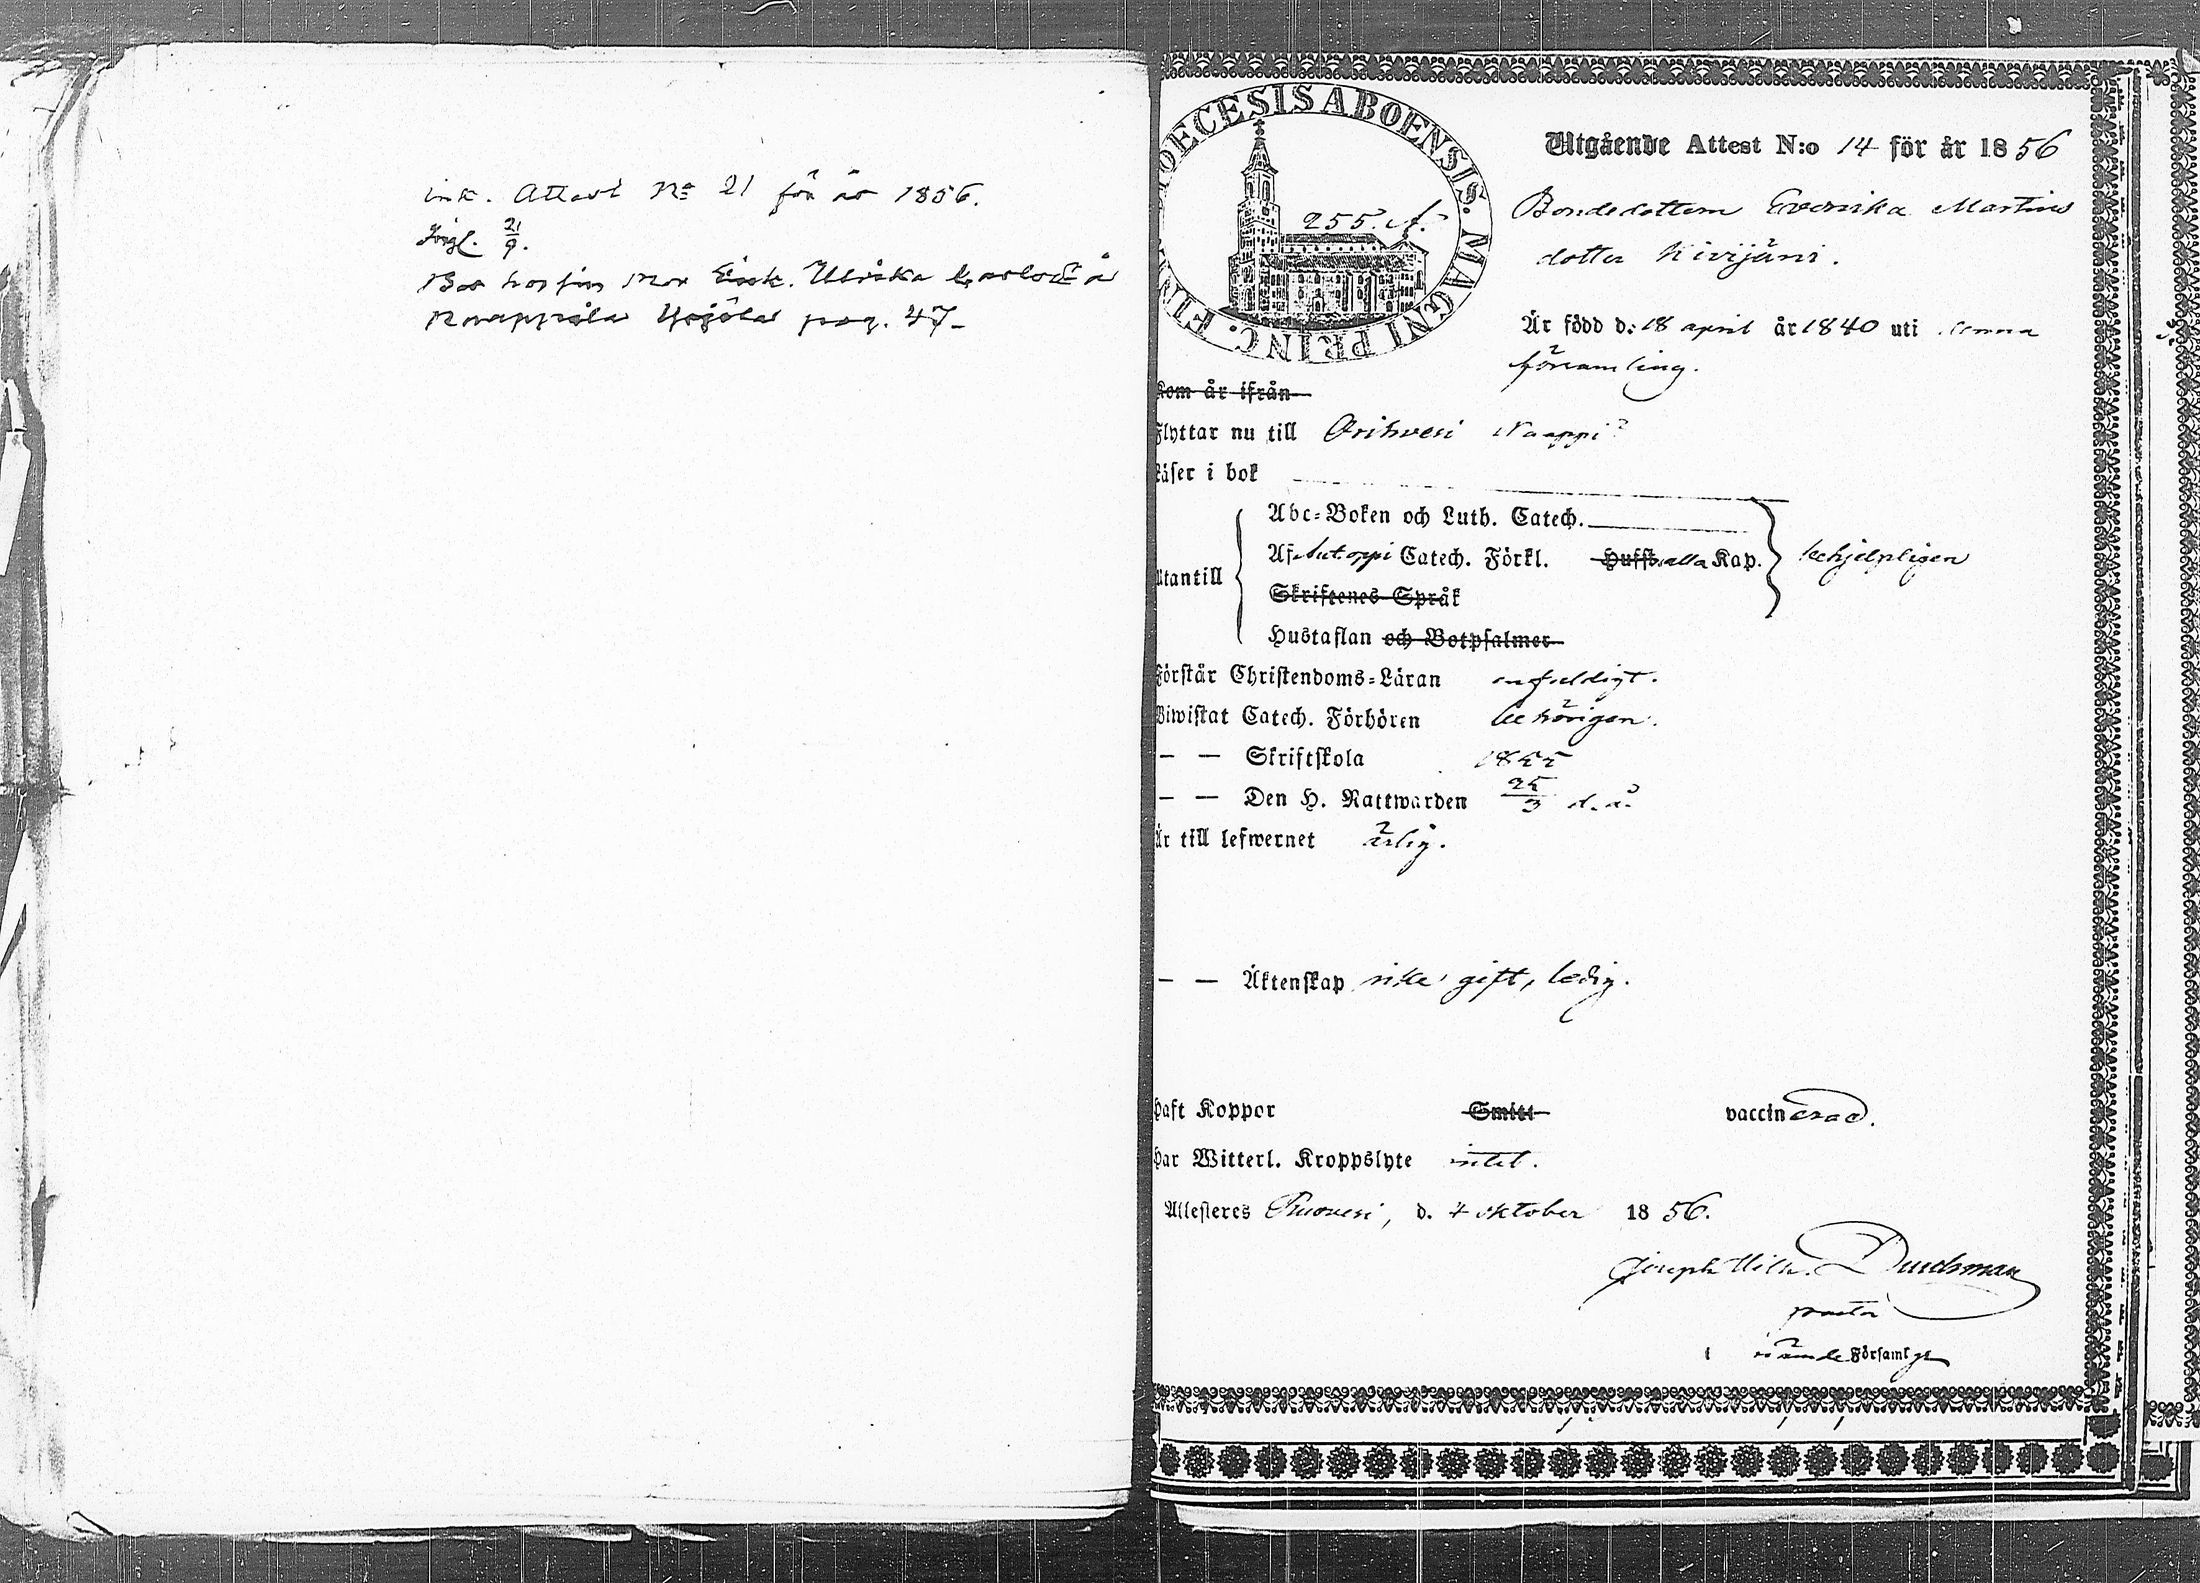 ink. Attest No 21 för år 1856.
21
9.
Bor hos sin mor Enk. Ulrika
pag. 47
DIOECESIS ABOENSIS. MAGNI PRINC. FIN
255. A.
Utgående Attest N:o 14 för år 1856
Bondedottern Everika Martins
dotter Kivijärvi.
Är född d: 18 april år 1840 uti denna
församling.
Kom år ifrån
Flyttar nu till Orihvesi Naappi
Läser i bok
Abc-Boken och Luth. Catech.
Utantill
Af Catech. Förkl. alla Kap. behjelpligen
Skriftenes Språk
Hustaflan och Botpsalmer
Förstår Christendoms-Läran enfaldigt.
Biwistat Catech. Förhören behörigen.
— — Skriftskola 1855
— — Den H. Nattwarden 25/3 d. å.
Är till lefwernet ärlig.
— — Äktenskap icke gift, ledig.
Haft Koppor Smitt vaccinerad.
Har Witterl. Kroppslyte intet.
Attesteres Ruovesi, d. 4 oktober 1856.
Joseph Wilh. Durchman
pastor
i Församlgn